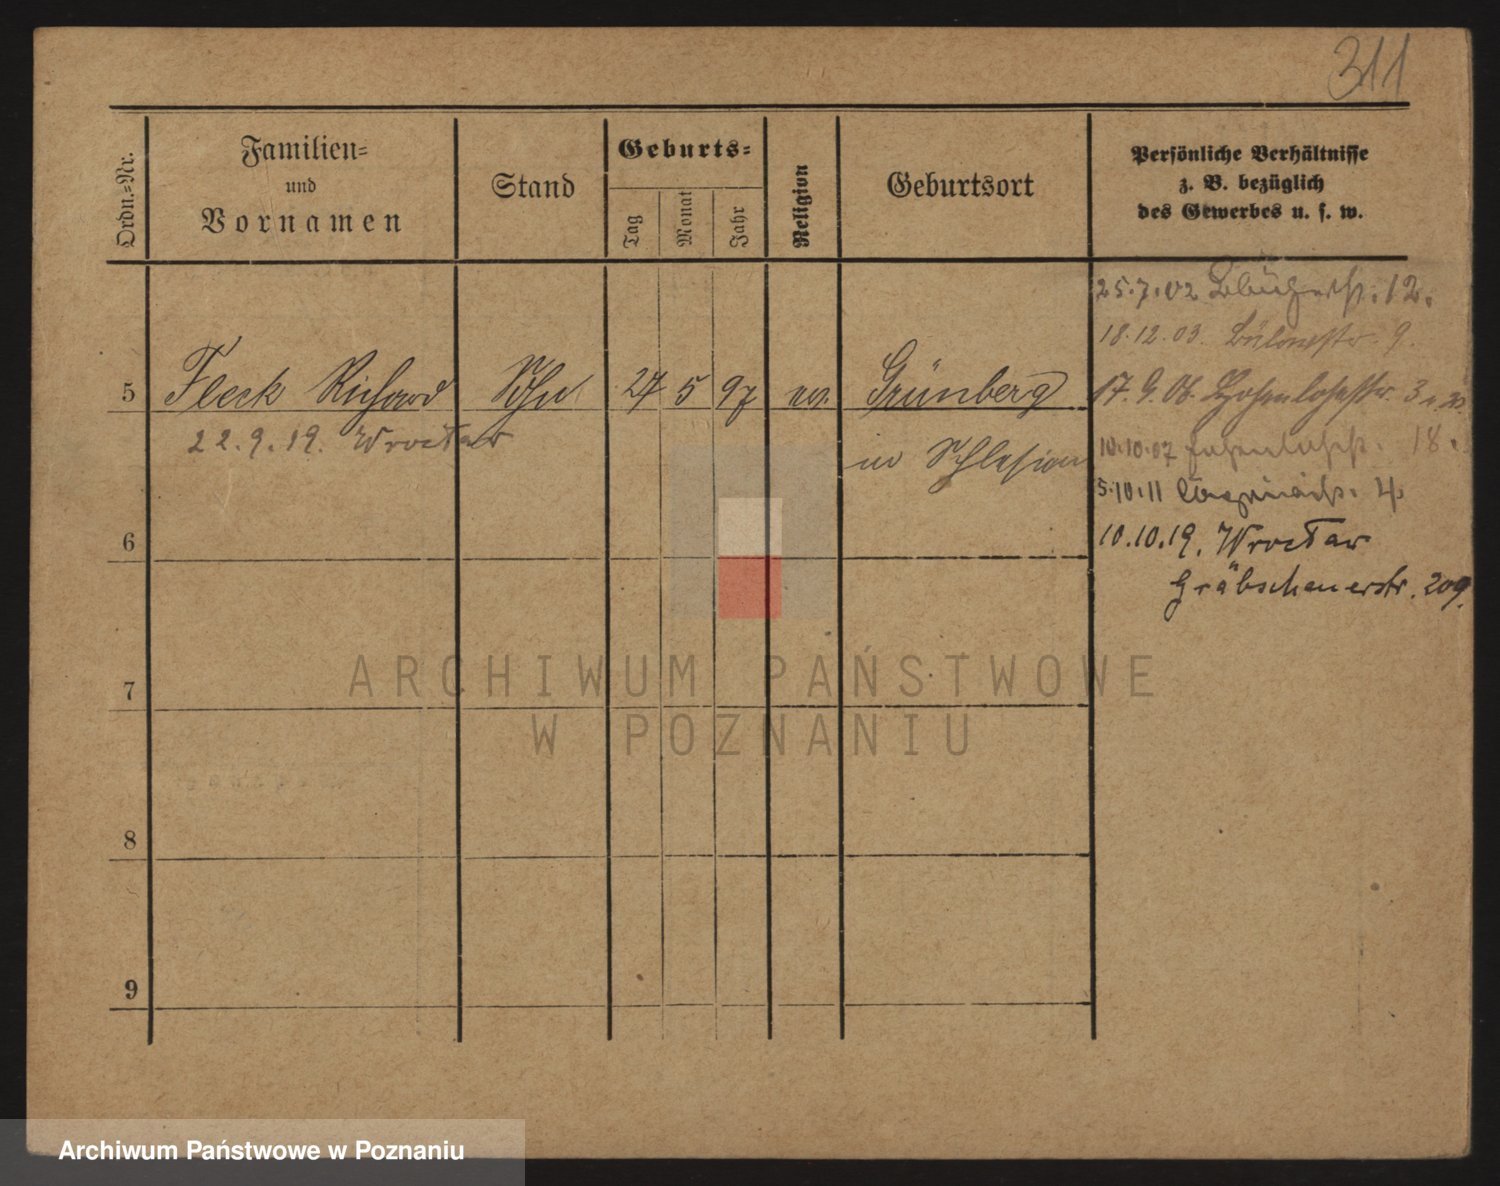 311
Ordn.-Nr.
Familien-
und
Vornamen
Stand
Geburts-
Tag
Monat
Jahr
Religion
Geburtsort
Persönliche Verhältnisse
z. B. bezüglich
des Gewerbes u. s. w.
25.7.02 12.
18.12.03. Bülowstr. 9.
5 Fleck Richard Sohn 24 5 97 ev. Grünberg
in Schlesien
22.9.19. Wrocław
17.9.06. Hohenlohestr. 3
10.10.07 18.
5.10.11 4
10.10.19. Wrocław
Gräbschenerstr. 209.
6
7
8
9
ARCHIWUM PAŃSTWOWE
W POZNANIU
Archiwum Państwowe w Poznaniu